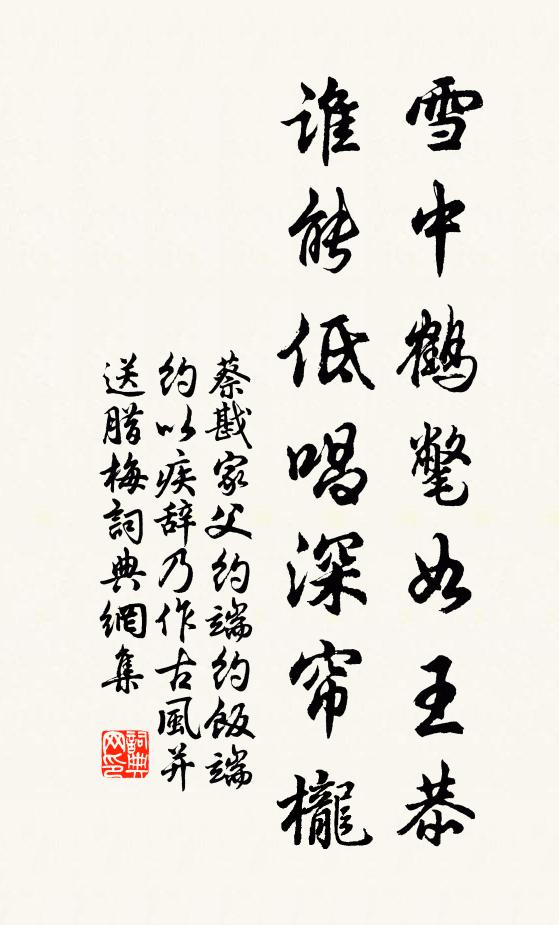 雪中鶴氅如王恭
谁能低唱深帘櫳
蔡戡家父約端約飯端
約以疾辞乃作古風并
送腊梅詞典網集
詞典
网印